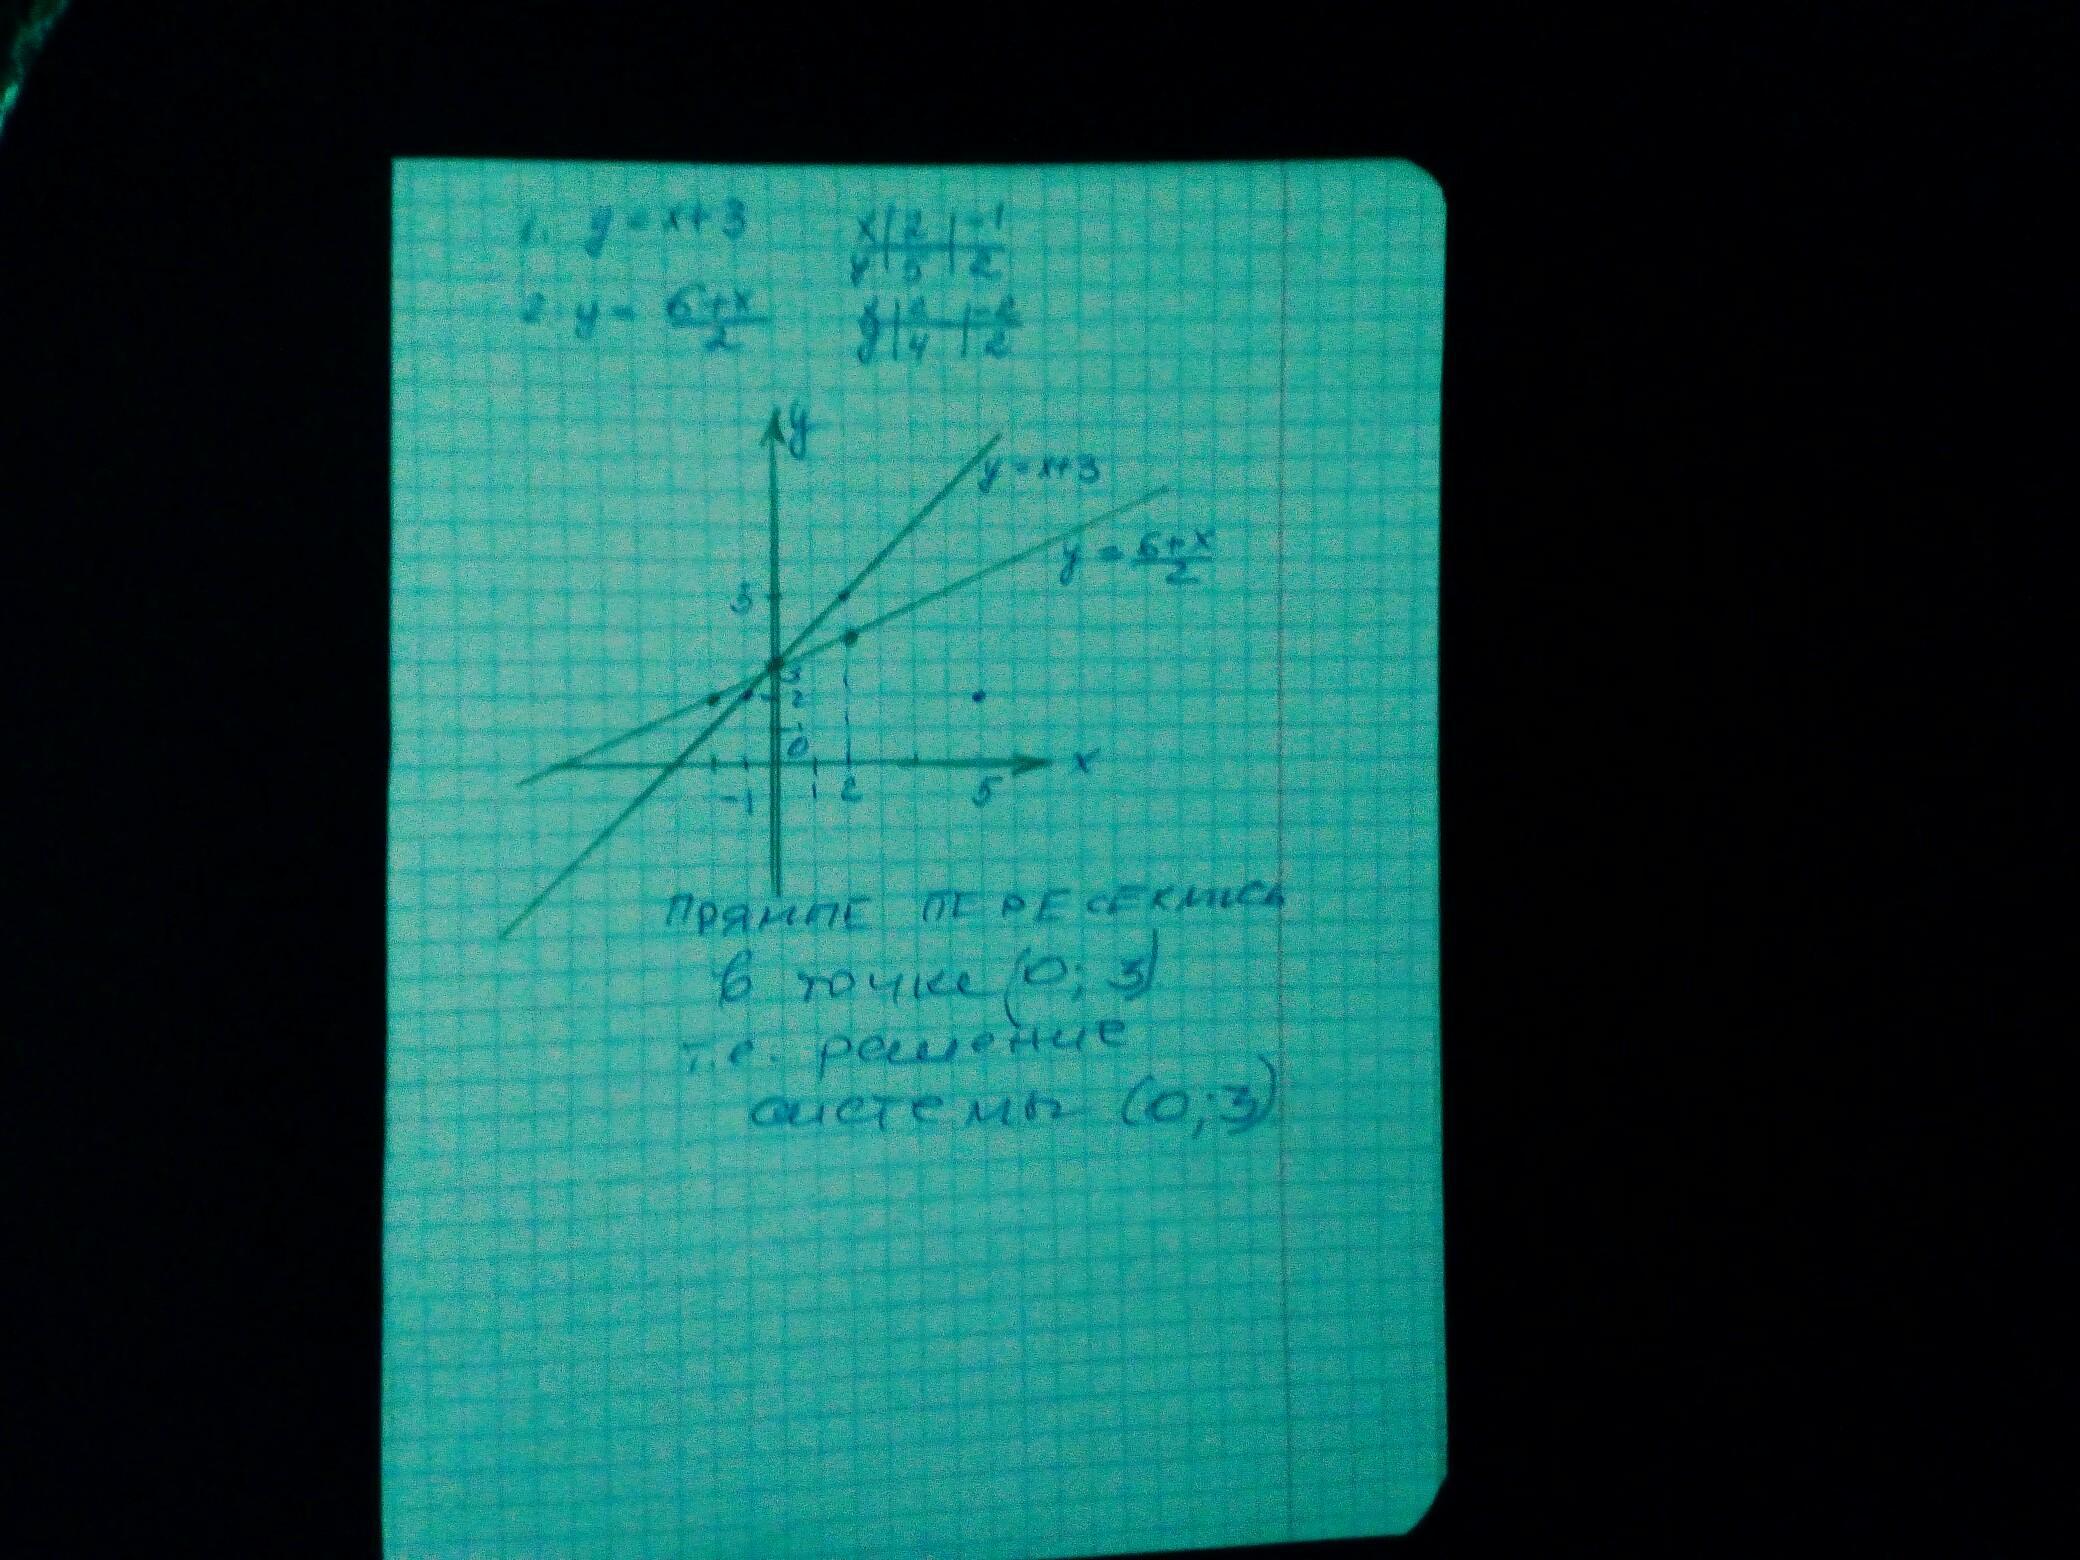 1. y = x+3  x | 2 | -1
y | 5 | 2
2. y = 6+x / 2  x | 2 | -2
y | 4 | 2
y
y = x+3
y = 6+x / 2
5
3
2
1
0
x
-1 1 2 5
ПРЯМЫЕ ПЕРЕСЕКЛИСЬ
в точке (0; 3)
т.е. решение
системы (0; 3)